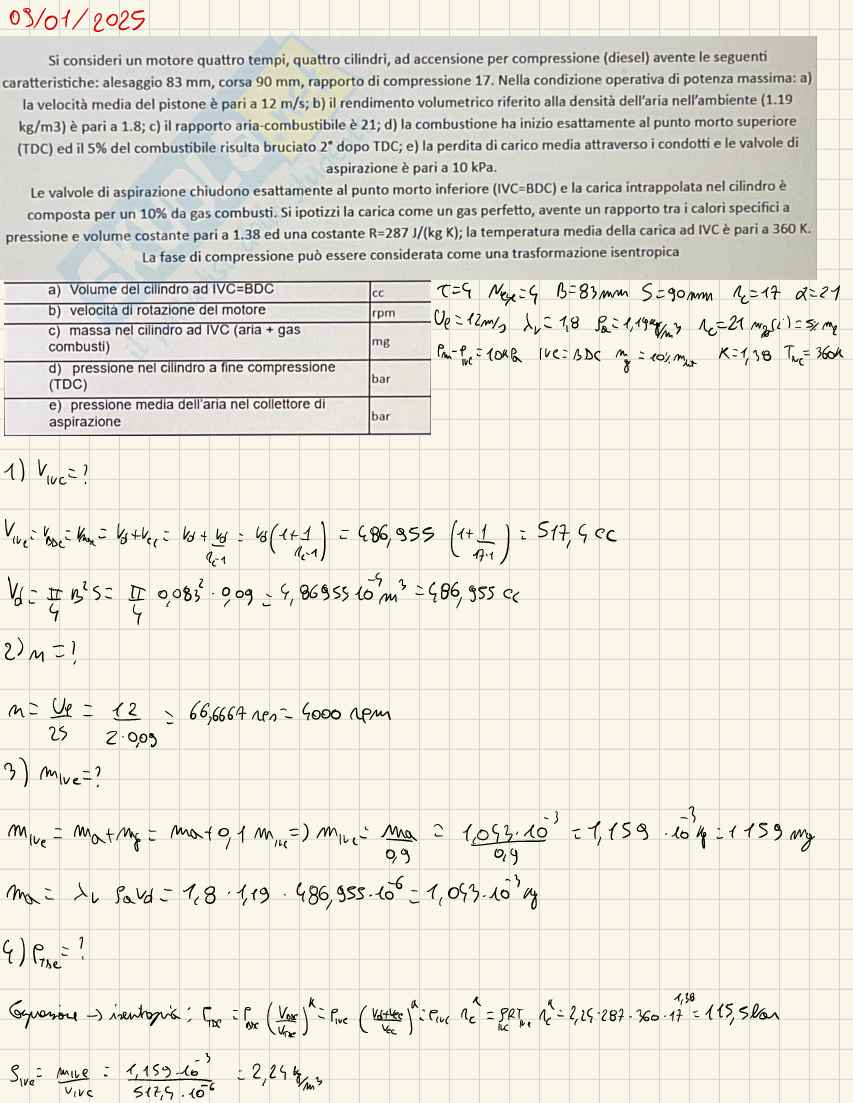 03/01/2025
Si consideri un motore quattro tempi, quattro cilindri, ad accensione per compressione (diesel) avente le seguenti
caratteristiche: alesaggio 83 mm, corsa 90 mm, rapporto di compressione 17. Nella condizione operativa di potenza massima: a)
la velocità media del pistone è pari a 12 m/s; b) il rendimento volumetrico riferito alla densità dell'aria nell'ambiente (1.19
kg/m3) è pari a 1.8; c) il rapporto aria-combustibile è 21; d) la combustione ha inizio esattamente al punto morto superiore
(TDC) ed il 5% del combustibile risulta bruciato 2° dopo TDC; e) la perdita di carico media attraverso i condotti e le valvole di
aspirazione è pari a 10 kPa.
Le valvole di aspirazione chiudono esattamente al punto morto inferiore (IVC=BDC) e la carica intrappolata nel cilindro è
composta per un 10% da gas combusti. Si ipotizzi la carica come un gas perfetto, avente un rapporto tra i calori specifici a
pressione e volume costante pari a 1.38 ed una costante R=287 J/(kg K); la temperatura media della carica ad IVC è pari a 360 K.
La fase di compressione può essere considerata come una trasformazione isentropica
a) Volume del cilindro ad IVC=BDC cc
b) velocità di rotazione del motore rpm
c) massa nel cilindro ad IVC (aria + gas
combusti) mg
d) pressione nel cilindro a fine compressione
(TDC) bar
e) pressione media dell'aria nel collettore di
aspirazione bar
τ=4 B=83mm S=90mm rc=17 α=21
Up=12m/s λv=1,8 ρa=1,19kg/m³ rc=21
=10kPa IVC=BDC mg=10% K=1,38 T_IVC=360K
1) V_IVC=?
V_IVC=V_BDC=V_max=Vd+Vcc=Vd+Vd/(rc-1)=Vd(1+1/(rc-1))=486,955(1+1/(17-1))=517,4 cc
Vd=π/4 B²S=π/4 0,083²·0,09=4,86955 10⁻⁴m³=486,955 cc
2) n=?
n=Up/2S=12/(2·0,09)=66,6667 rps=4000 rpm
3) m_IVC=?
m_IVC=ma+mg=ma+0,1 m_IVC=) m_IVC=ma/0,9=1,043·10⁻³/0,9=1,159·10⁻³kg=1159 mg
ma=λv ρaVd=1,8·1,19·486,955·10⁻⁶=1,043·10⁻³kg
4) P_TDC=?
→ isentropia: P_TDC=P_BDC(V_BDC/V_TDC)^K=P_IVC((Vd+Vcc)/Vcc)^K=P_IVC rc^K=ρ_IVC R T_IVC rc^K=2,24·287·360·17^1,38=115,5bar
ρ_IVC=m_IVC/V_IVC=1,159·10⁻³/517,4·10⁻⁶=2,24kg/m³